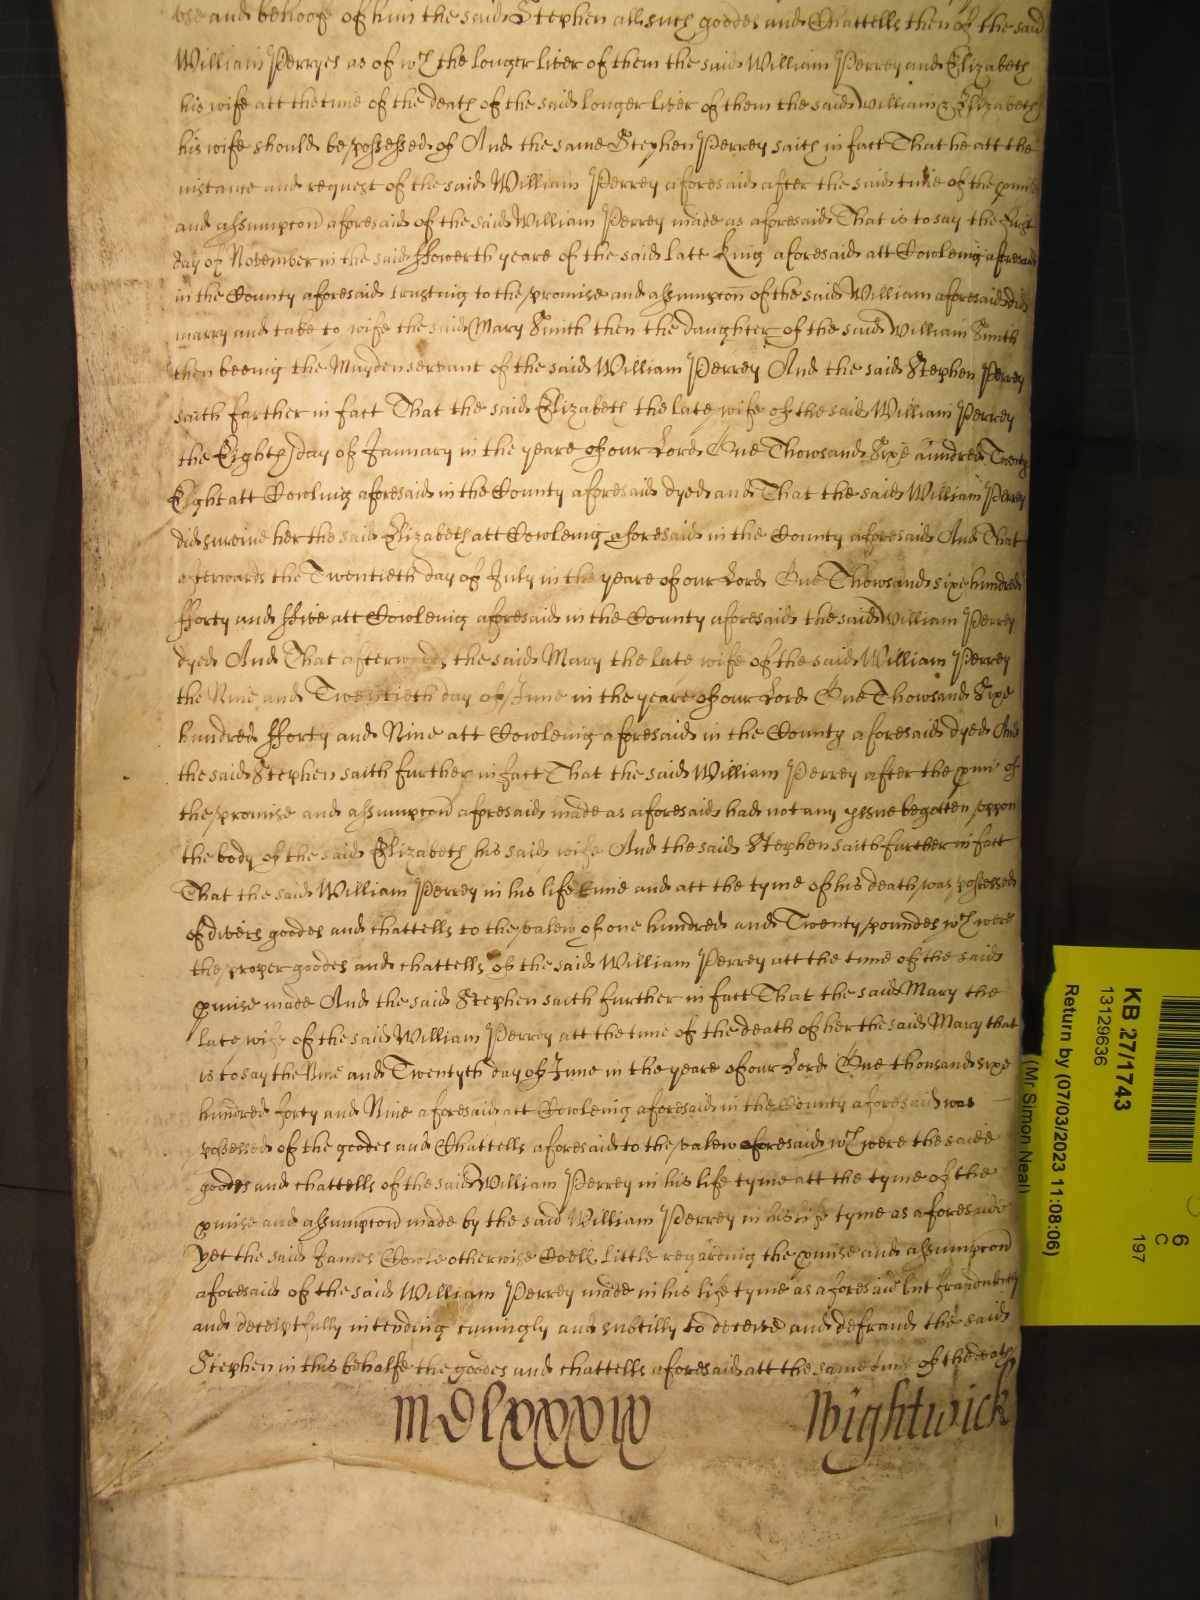 vse and behoofe of him the said Stephen all such goodes and Chattells then of the said
William Perryes as of wch the longer liver of them the said William Perrey and Elizabeth
his wife att the time of the death of the said longer liver of them the said William & Elizabeth
his wife should be possessed of And the same Stephen Perrey saith in fact That he att the
instance and request of the said William Perrey aforesaid after the said time of the pmise
and assumpcon aforesaid of the said William Perrey made as aforesaid That is to say the First
day of November in the said ffowerth yeare of the said late King aforesaid att Cowleing aforesaid
in the County aforesaid trusting to the promise and assumpcon of the said William aforesaid did
marry and take to wife the said Mary Smith then the daughter of the said William Smith
then beeing the Mayden servant of the said William Perrey And the said Stephen Perrey
saith farther in fact That the said Elizabeth the late wife of the said William Perrey
the Eighth day of January in the yeare of our Lord One Thowsand Sixe hundred Twenty
Eight att Cowling aforesaid in the County aforesaid dyed and That the said William Perrey
did surviue her the said Elizabeth att Cowleing aforesaid in the County aforesaid And That
afterwards the Twentieth day of July in the yeare of our Lord One Thowsand sixe hundred
fforty and ffive att Cowleing aforesaid in the County aforesaid the said William Perrey
dyed And That afterwards the said Mary the late wife of the said William Perrey
the Nine and Twentieth day of June in the yeare of our Lord One Thowsand Sixe
hundred fforty and Nine att Cowleing aforesaid in the County aforesaid dyed And
the said Stephen saith further in fact That the said William Perrey after the pmi of
the promise and assumpcon aforesaid made as aforesaid had not any yssue begotten vppon
the body of the said Elizabeth his said wife And the said Stephen saith further in fact
That the said William Perrey in his life time and att the tyme of his death was possessed
of divers goodes and chattells to the valew of one hundred and Twenty poundes wch were
the proper goodes and chattells of the said William Perrey att the time of the said
pmise made And the said Stephen saith further in fact That the said Mary the
late wife of the said William Perrey att the time of the death of her the said Mary that
is to say the Nine and Twentyth day of June in the yeare of our Lord One thousand sixe
hundred forty and Nine aforesaid att Cowleing aforesaid in the County aforesaid was
possessed of the goodes and Chattells aforesaid to the valew aforesaid wch were the saide
goodes and chattells of the said William Perrey in his life tyme att the tyme of the
pmise and assumpcon made by the said William Perrey in his life tyme as aforesaide
yet the said James Cowle otherwise Coell Little regarding the pmise and assumpcon
aforesaid of the said William Perrey made in his life tyme as aforesaid but fraudulently
and deceiptfully intending cuningly and subtilly to deceive and defraud the said
Stephen in this behalfe the goodes and chattells aforesaid att the same time of the death
MDlxxxiv Wightwick
KB 27/1743
13129636
Return by (07/03/2023 11:08:06)
(Mr Simon Neal)
6
C
197